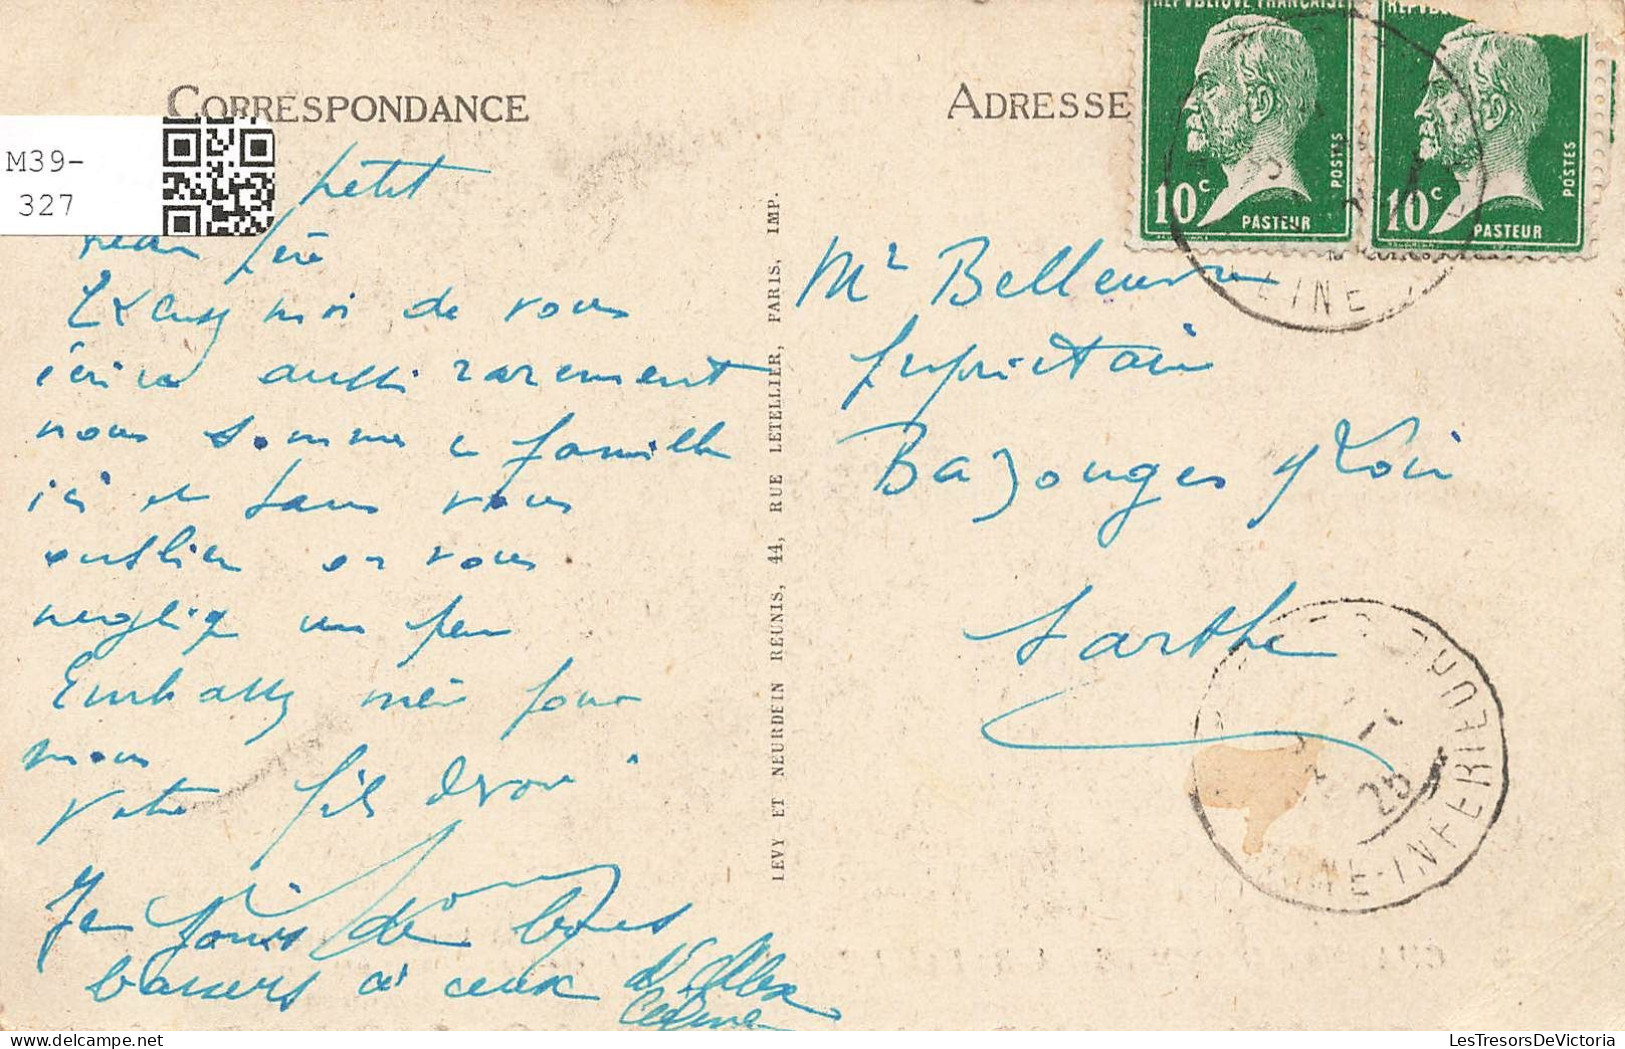 CORRESPONDANCE
M39-
327
petit
père
Excusez moi de vous
écrire aussi rarement
nous sommes en famille
ici et sans vous
oublier on vous
neglige un peu
Embrassez mère pour
nous
Votre fils
Je joins de
baisers à ceux d'Alex
Celine
LEVY ET NEURDEIN REUNIS, 44, RUE LETELLIER, PARIS, IMP.
ADRESSE
REPUBLIQUE FRANÇAISE
10c
POSTES
PASTEUR
10c
POSTES
PASTEUR
Mr Belleuvre
propriétaire
Bazouges s/ Loir
Sarthe
EINE
25
INE-INFERIEURE
LesTresorsDeVictoria